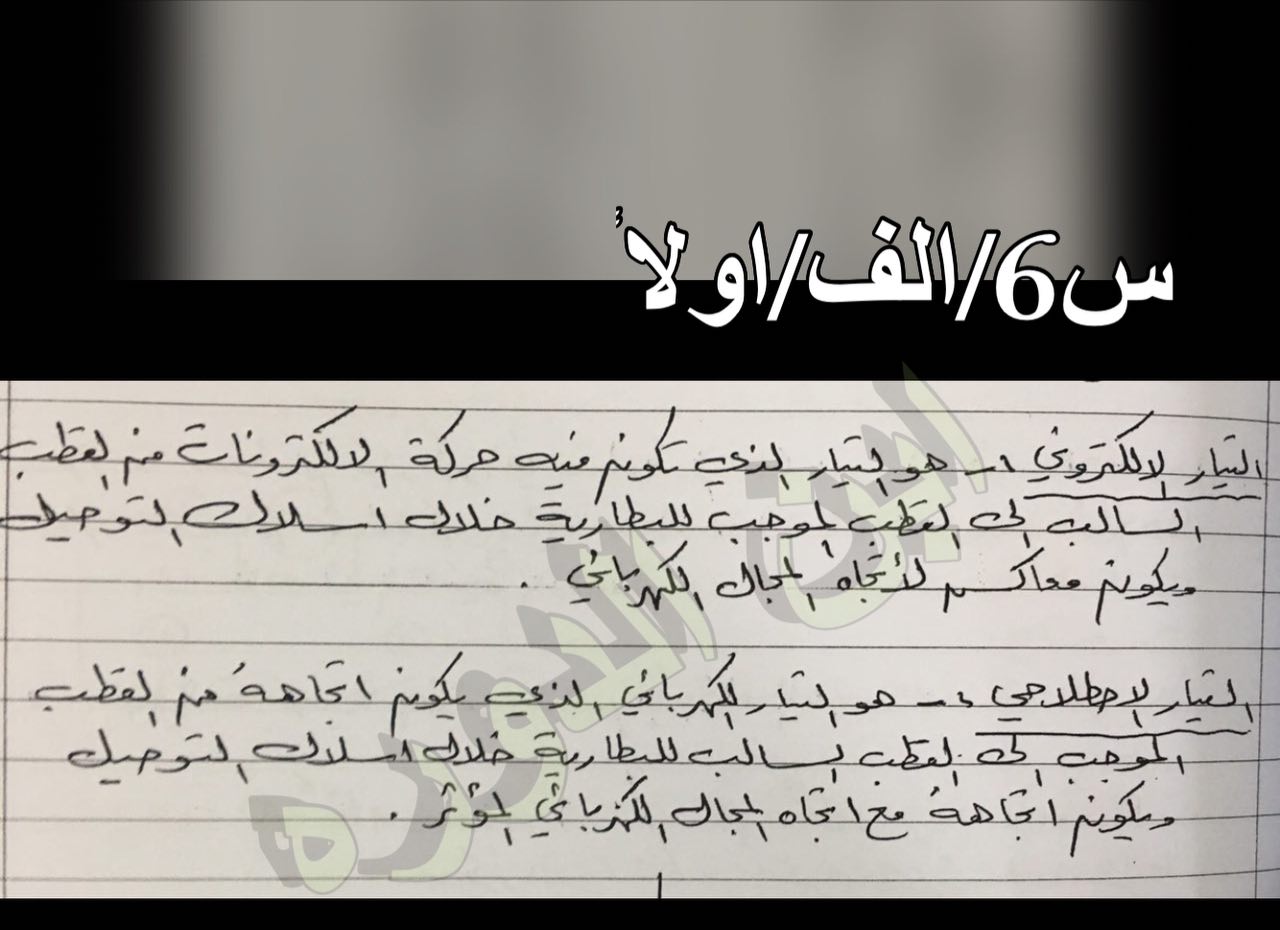 س6/الف/اولاً
التيار الالكتروني :- هو التيار الذي تكون فيه حركة الالكترونات من القطب
السالب الى القطب الموجب للبطارية خلال اسلاك التوصيل
ويكون معاكس لأتجاه المجال الكهربائي .
التيار الاصطلاحي :- هو التيار الكهربائي الذي يكون اتجاههُ من القطب
الموجب الى القطب السالب للبطارية خلال اسلاك التوصيل
ويكون اتجاههُ مع اتجاه المجال الكهربائي المؤثر .
ابن الدورة